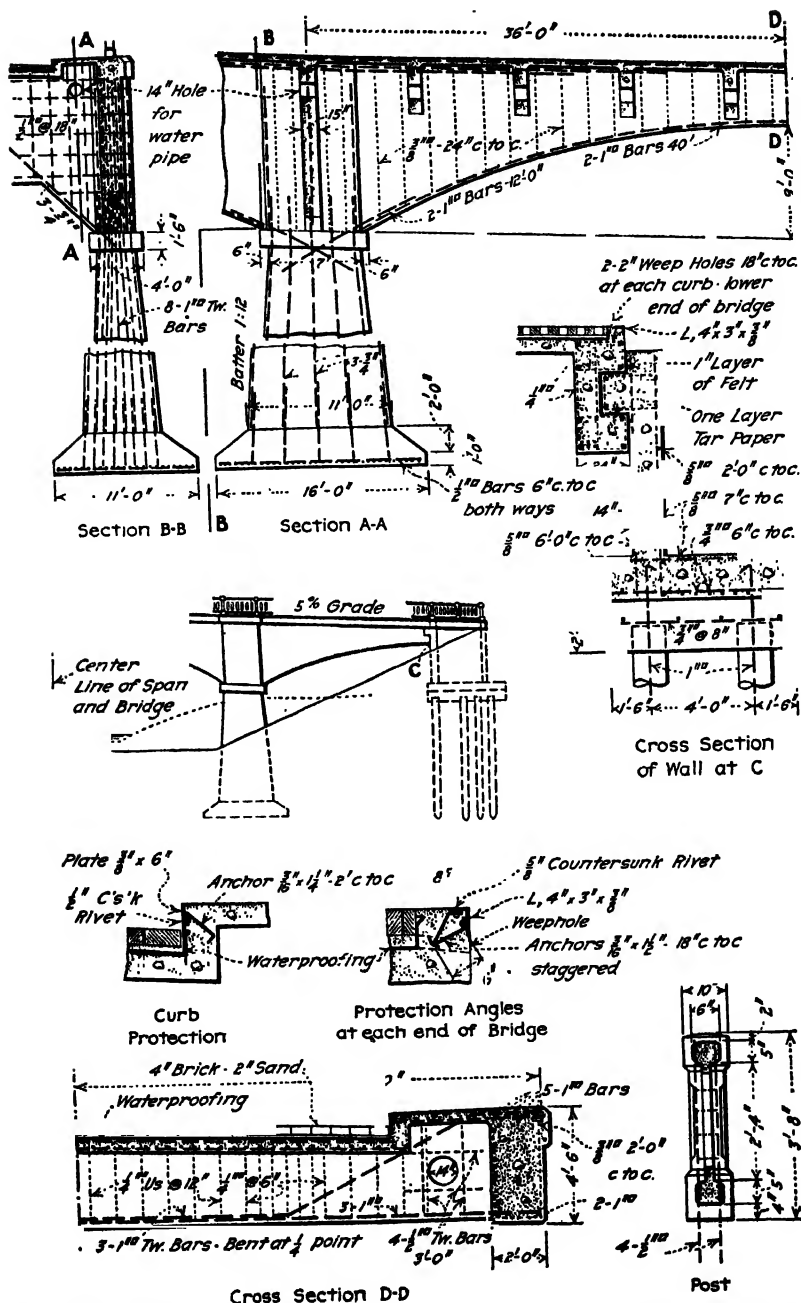 A
B
36'-0"
D
14" Hole
for
water
pipe
15"
1/2"□ @ 18"
3/8"□ - 24" c to c.
2-1"□ Bars 40'
2-1"□ Bars-12'-0"
D
9'-0"
3-3/4"□
A
1'-6"
4'-0"
8-1"□ Tw.
Bars
6"
6"
Batter 1:12
3-3/4"
11'-0"
2'-0"
1'-0"
11'-0"
16'-0"
Section B-B
B
Section A-A
1/2"□ Bars 6" c. to c
both ways
2-2" Weep Holes 18" c to c.
at each curb-lower
end of bridge
L, 4" x 3" x 3/8"
1" Layer
of Felt
1/4"□
One Layer
Tar Paper
24"
5/8"□ 2'-0" c to c.
14"
5/8"□ 7" c to c
5/8"□ 6'-0" c to c
3/4"□ 6" c to c.
3/4"□ @ 8"
2'
1"□
1'-6"
4'-0"
1'-6"
Cross Section
of Wall at C
5% Grade
Center
Line of Span
and Bridge
C
Plate 3/8" x 6"
1/2" C's'k
Rivet
Anchor 3/16" x 1 1/4" - 2' c to c
Waterproofing
Curb
Protection
8"
5/8" Countersunk Rivet
L, 4" x 3" x 3/8"
Weephole
Anchors 3/16" x 1 1/2" - 18" c to c
staggered
Protection Angles
at each end of Bridge
4" Brick - 2" Sand
Waterproofing
5-1"□ Bars
3/8"□ 2'-0"
c to c.
4'-6"
14"
1/4"□ Us @ 12"
1/4"□ @ 6"
3-1"□
2-1"□
3-1"□ Tw. Bars - Bent at 1/4 point
4-1/2"□ Tw. Bars
3'-0"
2'-0"
Cross Section D-D
10"
6"
2"
5"
2'-4"
3'-8"
5"
4"
4-1/2"□
Post